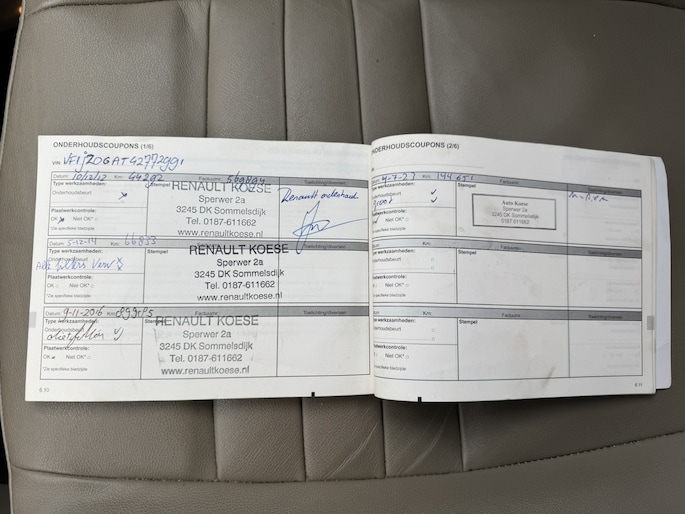 ONDERHOUDSCOUPONS (1/6)
VIN:
Datum: 10/12/12 Km: 44292 Factuurnr.:
Type werkzaamheden: Stempel Toelichting/diversen
Onderhoudsbeurt
Plaatwerkcontrole:
OK Niet OK*
*Zie specifieke bladzijde
RENAULT KOESE
Sperwer 2a
3245 DK Sommelsdijk
Tel. 0187-611662
Renault onderhoud
Datum: 5-12-14 Km: 66833 Factuurnr.:
Type werkzaamheden: Toelichting/diversen
Onderhoudsbeurt
Alle filters verv
Plaatwerkcontrole:
OK Niet OK*
*Zie specifieke bladzijde
RENAULT KOESE
Sperwer 2a
3245 DK Sommelsdijk
www.renaultkoese.nl
Datum: 9-11-2016 Km: Factuurnr.:
Type werkzaamheden: Stempel Toelichting/diversen
Onderhoudsbeurt
Plaatwerkcontrole:
OK Niet OK*
*Zie specifieke bladzijde
RENAULT KOESE
Sperwer 2a
3245 DK Sommelsdijk
Tel. 0187-611662
www.renaultkoese.nl
6.10
ONDERHOUDSCOUPONS (2/6)
Datum: 4-7-23 Km: 144651 Factuurnr.:
Type werkzaamheden: Stempel Toelichting/diversen
Onderhoudsbeurt
Plaatwerkcontrole:
OK Niet OK*
*Zie specifieke bladzijde
Auto Koese
Sperwer 2a
3245 DK Sommelsdijk
0187-611662
Km: Factuurnr.:
Type werkzaamheden: Stempel Toelichting/diversen
Onderhoudsbeurt
Plaatwerkcontrole:
OK Niet OK*
*Zie specifieke bladzijde
Datum: Km: Factuurnr.:
Type werkzaamheden: Stempel Toelichting/diversen
Onderhoudsbeurt
Plaatwerkcontrole:
OK Niet OK*
*Zie specifieke bladzijde
6.11